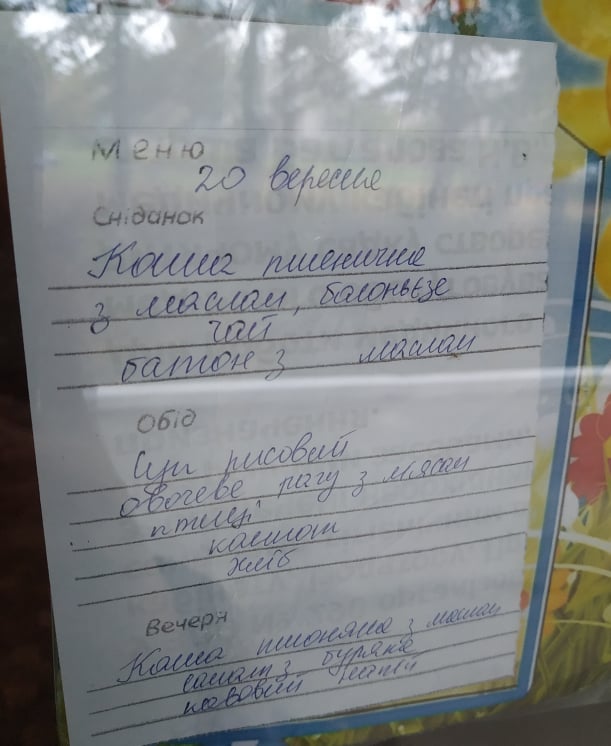 Меню
20 вересня
Сніданок
Каша пшенична
з маслом, болоньєзе
чай
батон з маслом
Обід
Суп рисовий
овочеве рагу з м'ясом
птиці
компот
хліб
Вечеря
Каша пшоняна з маслом
салат з буряка
кавовий напій